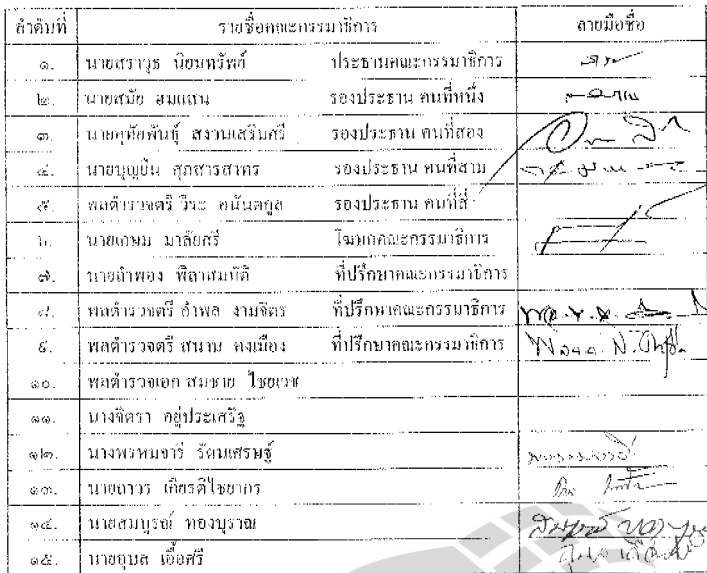 ลำดับที่ รายชื่อคณะกรรมาธิการ ลายมือชื่อ
๑. นายสราวุธ นิยมทรัพย์ ประธานคณะกรรมาธิการ
๒. นายสมัย ฮมแสน รองประธาน คนที่หนึ่ง
๓. นายอุทัยพันธุ์ สงวนเสริมศรี รองประธาน คนที่สอง
๔. นายบุญปั๋น ศุภสารสาทร รองประธาน คนที่สาม
๕. พลตำรวจตรี วีระ อนันตกูล รองประธาน คนที่สี่
๖. นายเกษม มาลัยศรี โฆษกคณะกรรมาธิการ
๗. นายถำพอง พิลาสมบัติ ที่ปรึกษาคณะกรรมาธิการ
๘. พลตำรวจตรี อำพล งามจิตร ที่ปรึกษาคณะกรรมาธิการ
๙. พลตำรวจตรี สนาม คงเมือง ที่ปรึกษาคณะกรรมาธิการ
๑๐. พลตำรวจเอก สมชาย ไชยเวช
๑๑. นางจิตรา อยู่ประเสริฐ
๑๒. นางพรหมจารี รัตนเศรษฐ์
๑๓. นายถาวร เกียรติไชยากร
๑๔. นายสมบูรณ์ ทองบุราณ
๑๕. นายอุบล เอื้อศรี